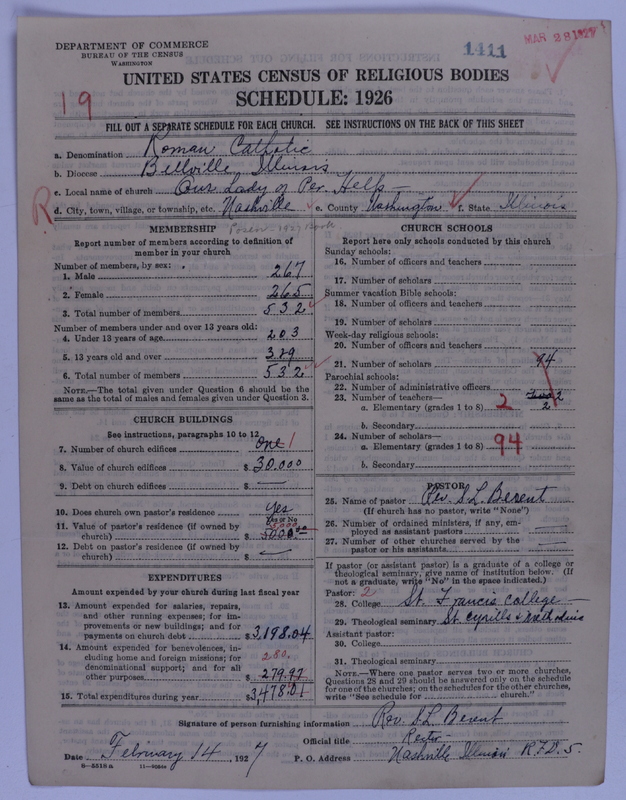 DEPARTMENT OF COMMERCE
BUREAU OF THE CENSUS
WASHINGTON
1411
MAR 28 1927
UNITED STATES CENSUS OF RELIGIOUS BODIES
SCHEDULE: 1926
19
FILL OUT A SEPARATE SCHEDULE FOR EACH CHURCH. SEE INSTRUCTIONS ON THE BACK OF THIS SHEET
a. Denomination Roman Catholic
b. Diocese Bellville, Illinois
c. Local name of church Our Lady of Per. Help
R
d. City, town, village, or township, etc. Nashville e. County Washington f. State Illinois
Posen - 1927 Book
MEMBERSHIP
Report number of members according to definition of
member in your church
Number of members, by sex:
1. Male 267
2. Female 265
3. Total number of members 532
Number of members under and over 13 years old:
4. Under 13 years of age 203
5. 13 years old and over 329
6. Total number of members 532
NOTE.—The total given under Question 6 should be the
same as the total of males and females given under Question 3.
CHURCH BUILDINGS
See instructions, paragraphs 10 to 12
7. Number of church edifices one 1
8. Value of church edifices $ 30.000
9. Debt on church edifices $ —
10. Does church own pastor's residence Yes
Yes or No
11. Value of pastor's residence (if owned by 5000
church) $ 5000.00
12. Debt on pastor's residence (if owned by
church) $ —
EXPENDITURES
Amount expended by your church during last fiscal year
13. Amount expended for salaries, repairs,
and other running expenses; for im-
provements or new buildings; and for
payments on church debt $ 3,198.04
14. Amount expended for benevolences, in-
cluding home and foreign missions; for 280.
denominational support; and for all
other purposes $ 279.97
15. Total expenditures during year $ 3,478.01
CHURCH SCHOOLS
Report here only schools conducted by this church
Sunday schools:
16. Number of officers and teachers
17. Number of scholars
Summer vacation Bible schools:
18. Number of officers and teachers
19. Number of scholars
Week-day religious schools:
20. Number of officers and teachers
21. Number of scholars 94
Parochial schools:
22. Number of administrative officers
23. Number of teachers— 2
a. Elementary (grades 1 to 8) 2 2
b. Secondary
24. Number of scholars—
a. Elementary (grades 1 to 8) 94
b. Secondary
PASTOR
25. Name of pastor Rev. S L Berent
(If church has no pastor, write "None")
26. Number of ordained ministers, if any, em-
ployed as assistant pastors —
27. Number of other churches served by the
pastor or his assistants —
If pastor (or assistant pastor) is a graduate of a college or
theological seminary, give name of institution below. (If
not a graduate, write "No" in the space indicated.)
Pastor: 2
28. College St. Francis College
29. Theological seminary St. Cyrills &
Assistant pastor:
30. College
31. Theological seminary
NOTE.—Where one pastor serves two or more churches,
Questions 28 and 29 should be answered only on the schedule
for one of the churches; on the schedules for the other churches,
write "See schedule for church."
Signature of person furnishing information Rev. S L Berent
Official title Rector
Date February 14, 1927 P. O. Address Nashville Illinois R.F.D. 5.
8—5518a 11—9054